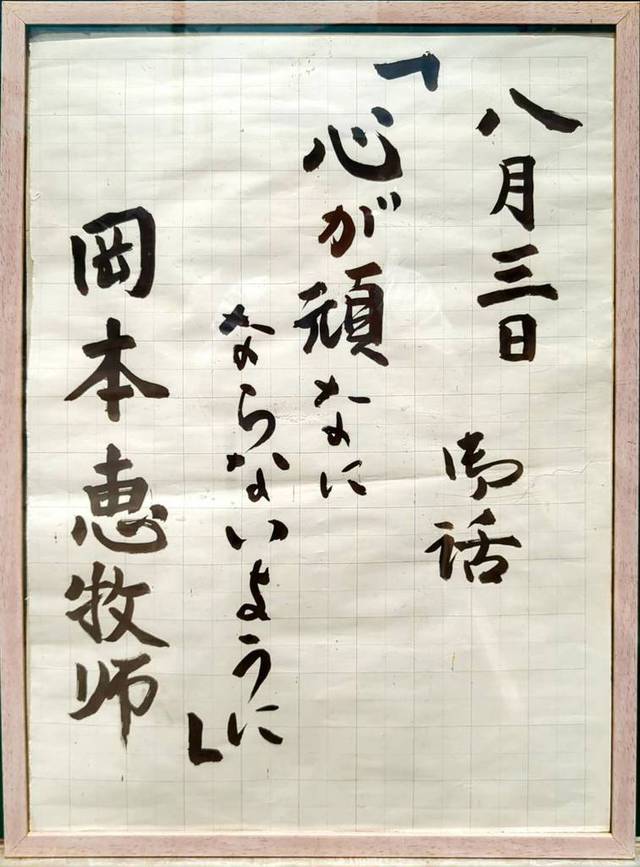 八月三日
御話
「心が頑なに
ならないように」
岡本恵牧师